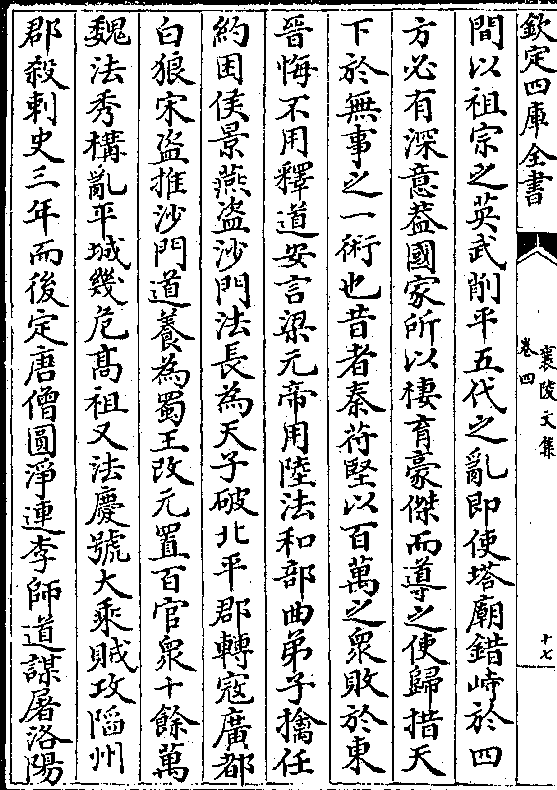 欽定四庫全書
襄陵文集
卷四
十七
間以祖宗之英武削平五代之亂即使塔廟錯峙於四
方必有深意葢國家所以棲育豪傑而導之使歸措天
下於無事之一術也昔者秦苻堅以百萬之衆敗於東
晉悔不用釋道安言梁元帝用陸法和部曲弟子擒任
約困侯景燕盗沙門法長為天子破北平郡轉寇廣都
白狼宋盗推沙門道養為蜀王改元置百官衆十餘萬
魏法秀構亂平城幾危髙祖又法慶號大乘賊攻䧟州
郡殺刺史三年而後定唐僧圓淨連李師道謀屠洛陽